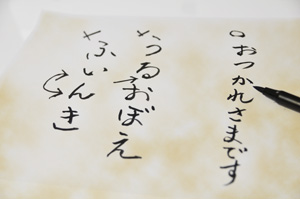 ○おつかれさまです
×うるおぼえ
×ふいんき